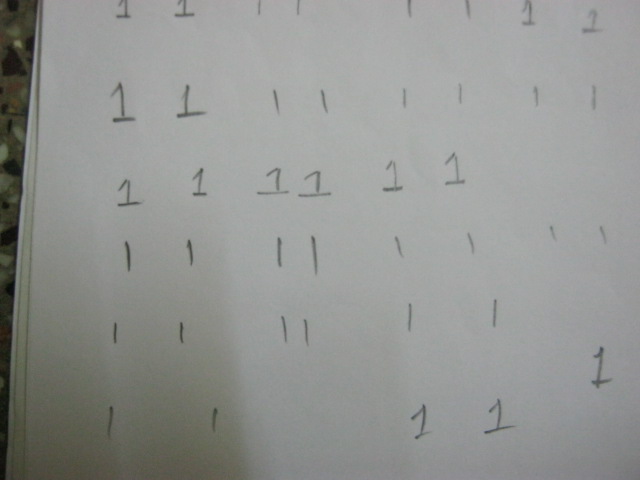 1 1 1 1 1 1 1 1
1 1 1 1 1 1 1 1
1 1 1 1 1 1
1 1 1 1 1 1 1 1
1 1 1 1 1 1
1
1 1 1 1